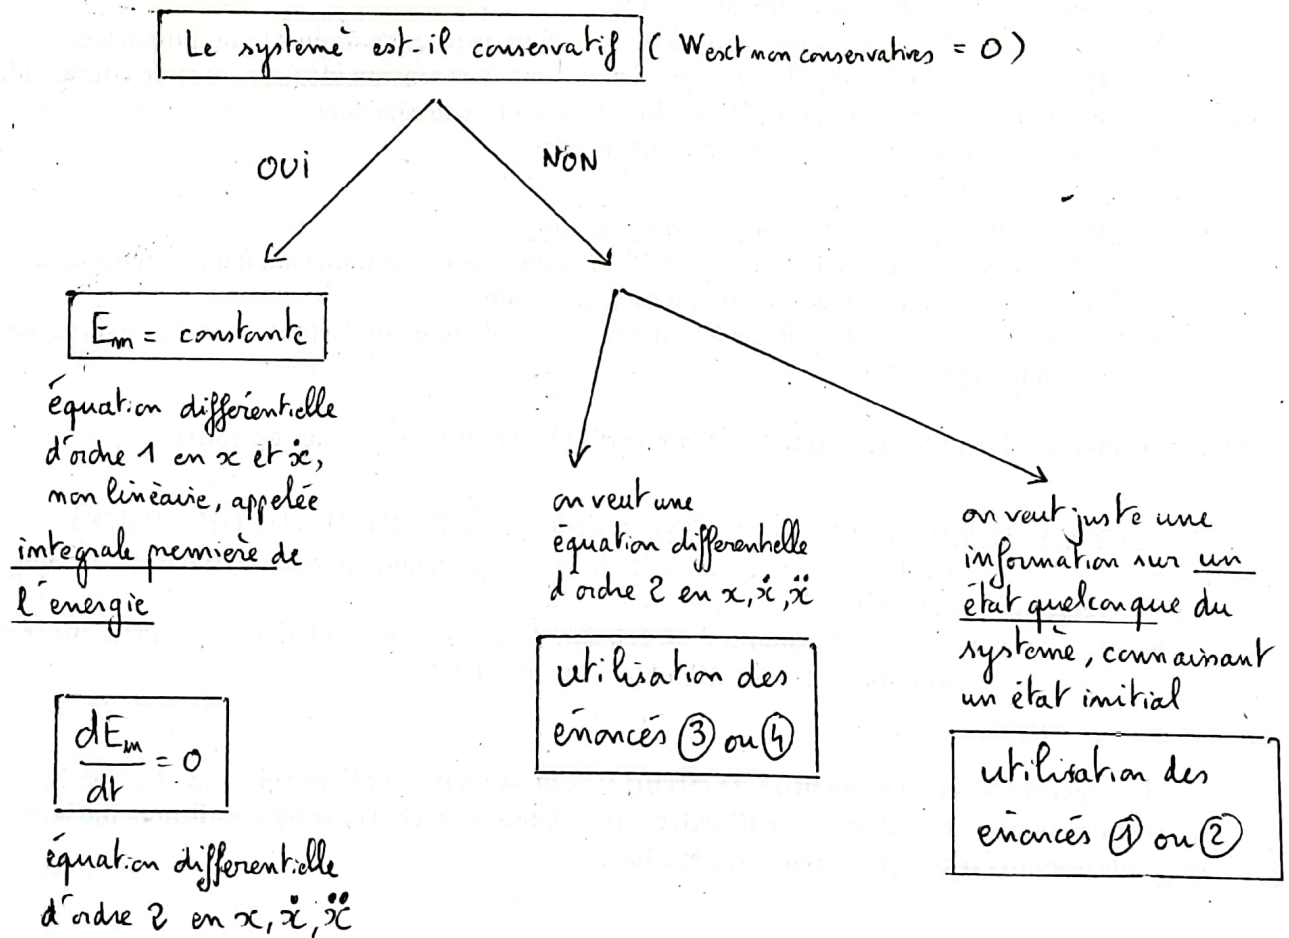 Le système est-il conservatif ( Wext non conservatives = 0 )
OUI
NON
Em = constante
équation différentielle
d'ordre 1 en x et ẋ,
non linéaire, appelée
integrale premiere de
l'énergie
dEm/dt = 0
équation differentielle
d'ordre 2 en x, ẋ, ẍ
on veut une
équation differentielle
d'ordre 2 en x, ẋ, ẍ
utilisation des
énoncés ③ ou ④
on veut juste une
information sur un
état quelconque du
système, connaissant
un état initial
utilisation des
énoncés ① ou ②